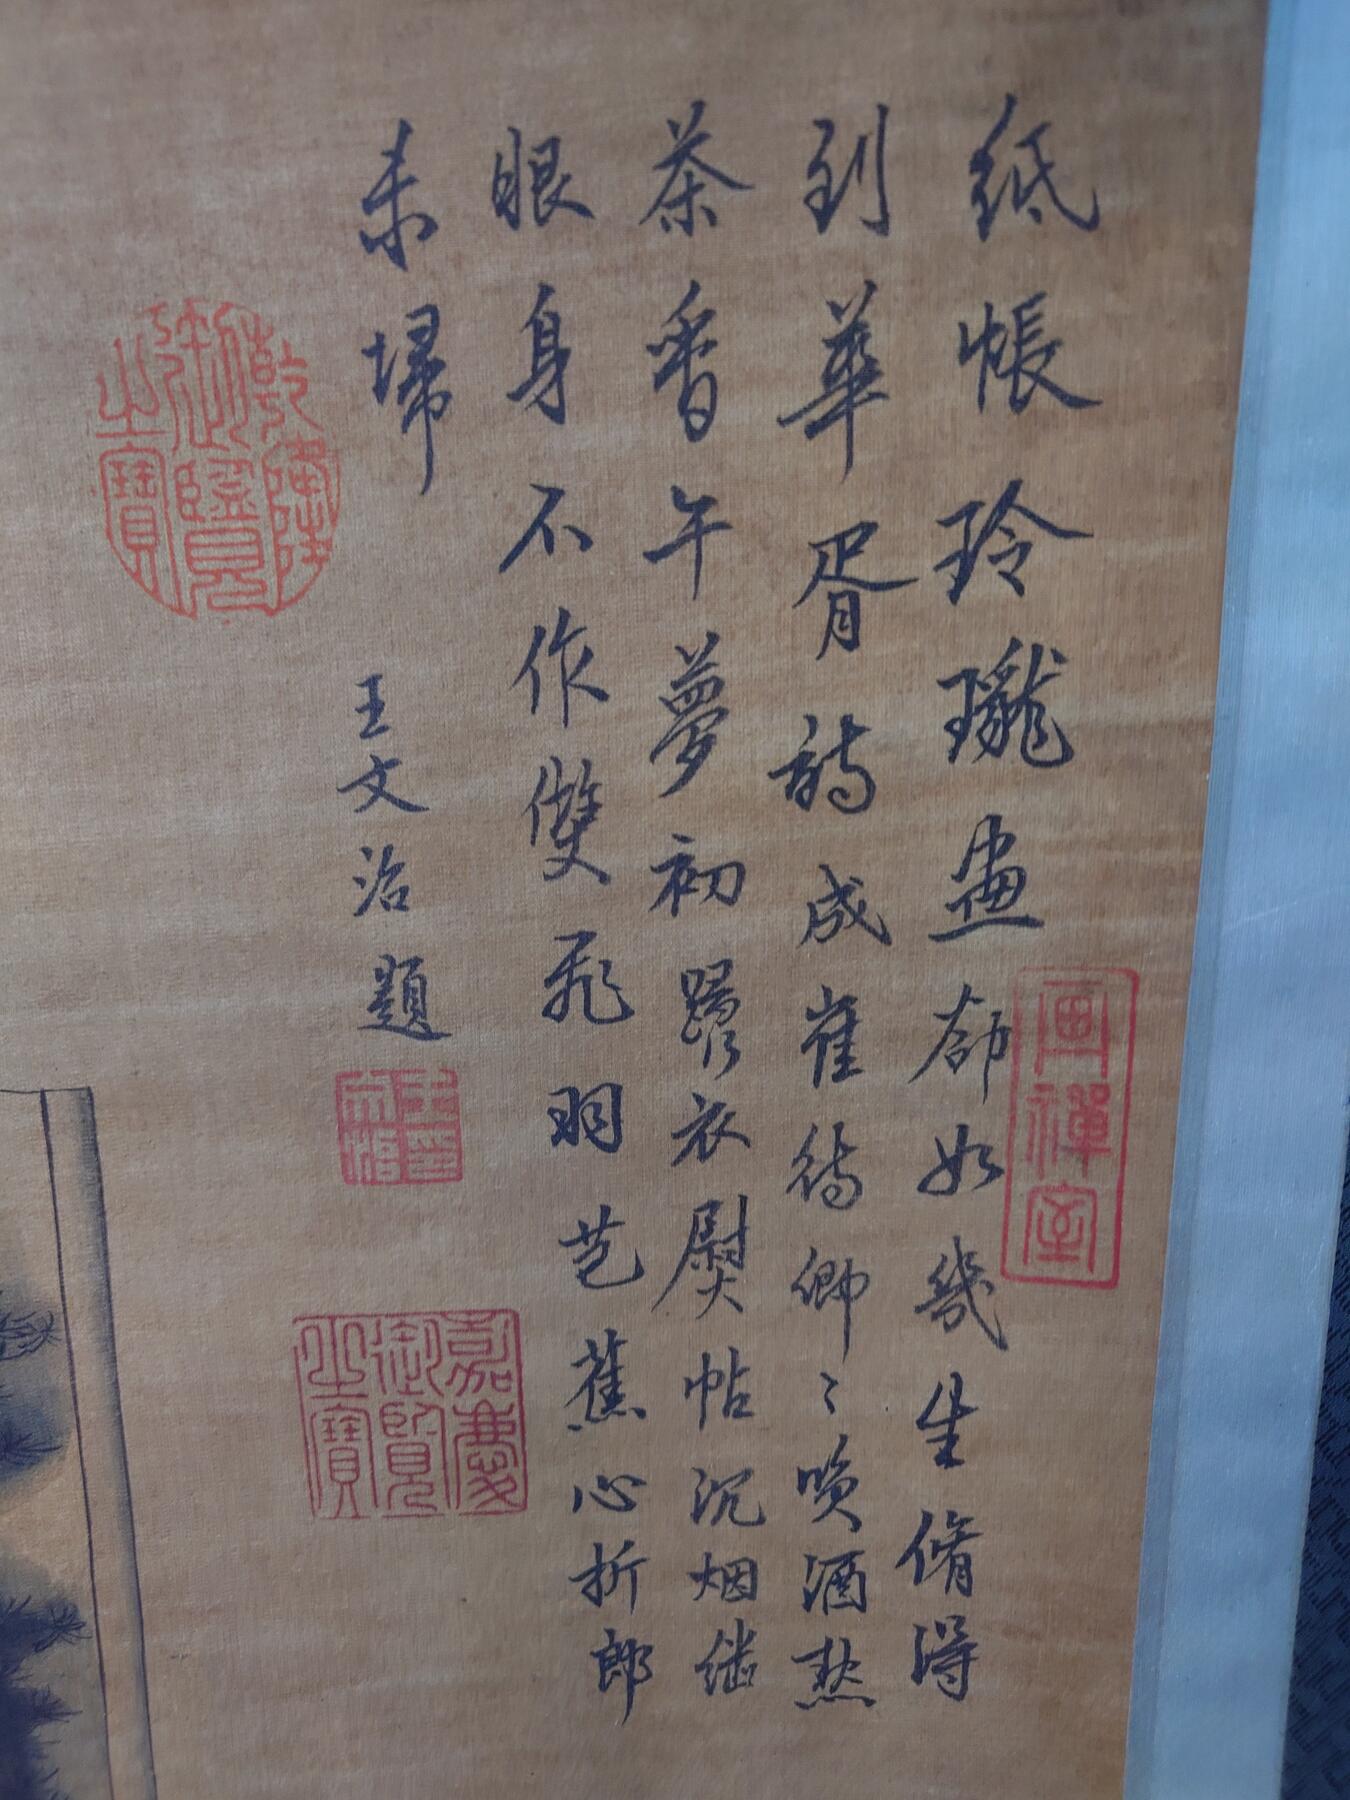 紙帳玲瓏畫郤如幾生脩得
到華胥詩成崔待卿〻喚酒熱
茶香午夢初 衣熨帖沉烟继
眼身不作雙飛羽芭蕉心折郎
未埽
王文治題
乾隆御覽之寶
嘉慶御覽之寶
畫禪室